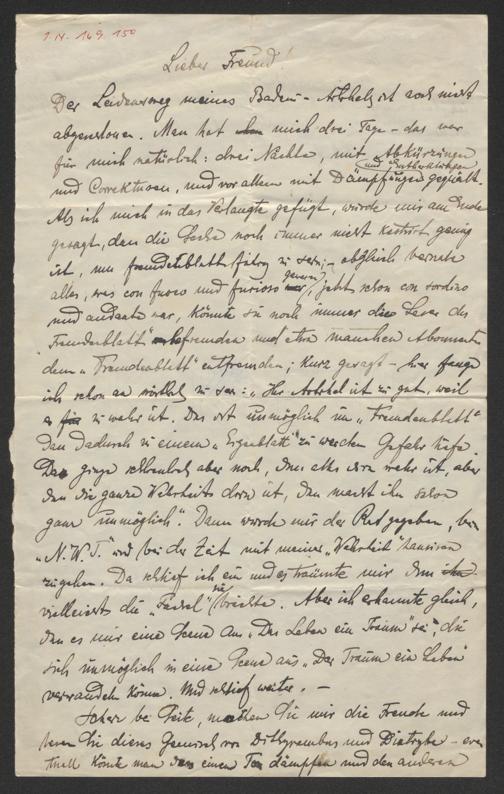 I.N. 169.150
Lieber Freund!
Der Leidensweg meines Baden-Artikels ist noch nicht
abgeschlossen. Man hat mich drei Tage – das war
für mich natürlich: drei Nächte, mit Abkürzungen
und Correkturen, und vor allem mit Dämpfungen gequält.
Als ich mich in das Verlangte gefügt, wurde mir am Ende
gesagt, daß die Sache noch immer nicht kastrirt genug
ist, um fremdenblattfähig zu sein; – obgleich bereits
alles, was con fuoco und furioso gewesen, jetzt schon con sordino
und andante war, könnte sie noch immer die Leser des
„Fremdenblatt" befremden und etwa manchen Abonnenten
dem „Fremdenblatt" entfremden; kurz gesagt – hier fange
ich schon an wörtlich zu sein: „Ihr Artikel ist zu gut, weil
er zu wahr ist. Das ist unmöglich im „Fremdenblatt"
das dadurch zu einem „Eigenblatt" zu werden Gefahr liefe.
Das ginge schließlich aber noch, daß alles darin wahr ist, aber
daß die ganze Wahrheit darin ist, das macht ihn schon
ganz unmöglich". Dann wurde mir der Rat gegeben, beim
„N.W.T." und bei der Zeit mit meiner „Wahrheit" hausiren
zu gehen. Da schlief ich ein und es träumte mir dass
vielleicht die „Fackel" sie brächte. Aber ich erkannte gleich,
daß es mir eine Scene aus „Das Leben ein Traum" sei, die
sich unmöglich in eine Scene aus „Der Traum ein Leben"
verwandeln könne. Und schlief weiter. –
Scherz bei Seite, machen Sie mir die Freude und
lesen Sie dieses Gemisch von Dithyrambus und Diatribe – even
tuell könnte man den einen Ton dämpfen und den anderen